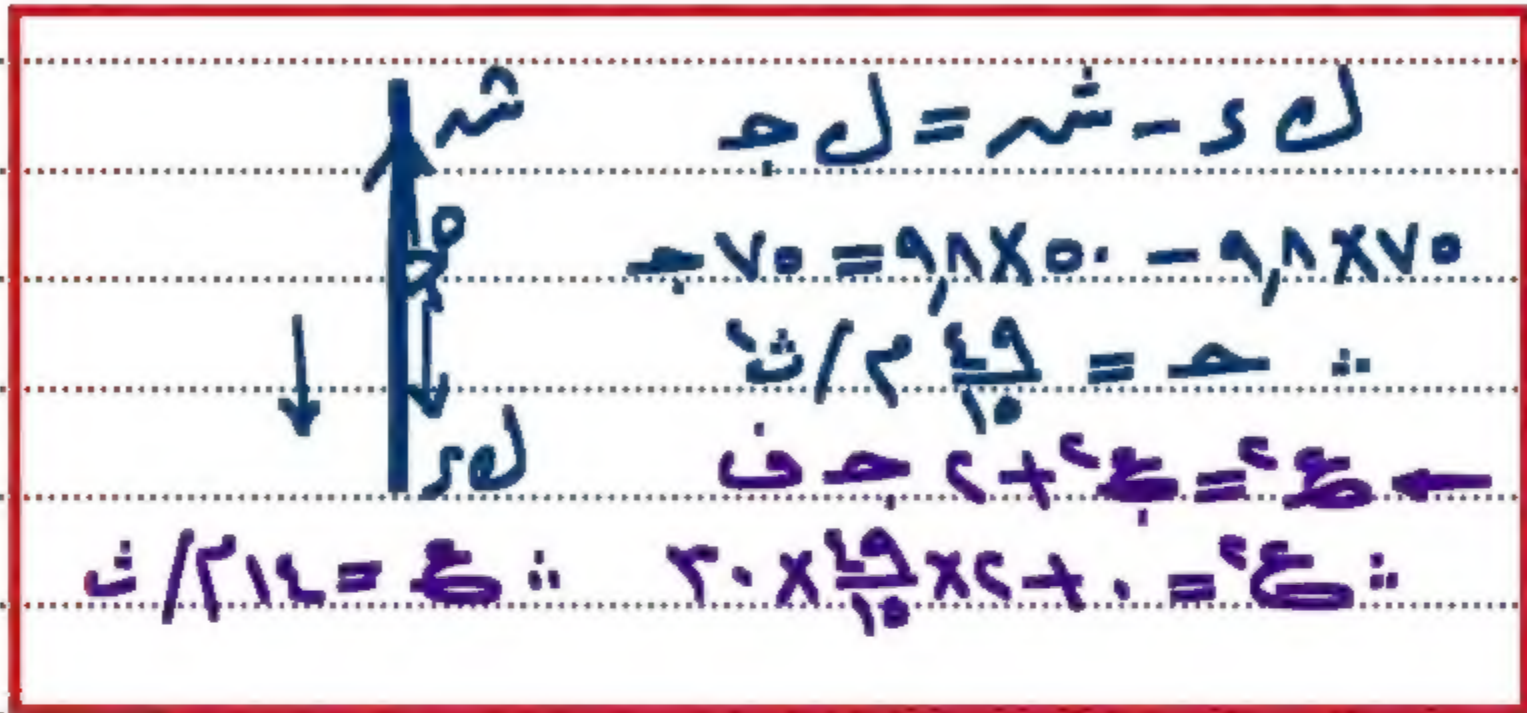 ك ء - شـ = ك جـ
شـ
٧٥ × ٩,٨ - ٥٠ × ٩,٨ = ٧٥ جـ
∴ حـ = ٤٩/١٥ م/ث٢
ك ء
← ع٢ = ع.٢ + ٢ جـ ف
∴ ع٢ = ٠ + ٢ × ٤٩/١٥ × ٣٠ ∴ ع = ١٤ م/ث